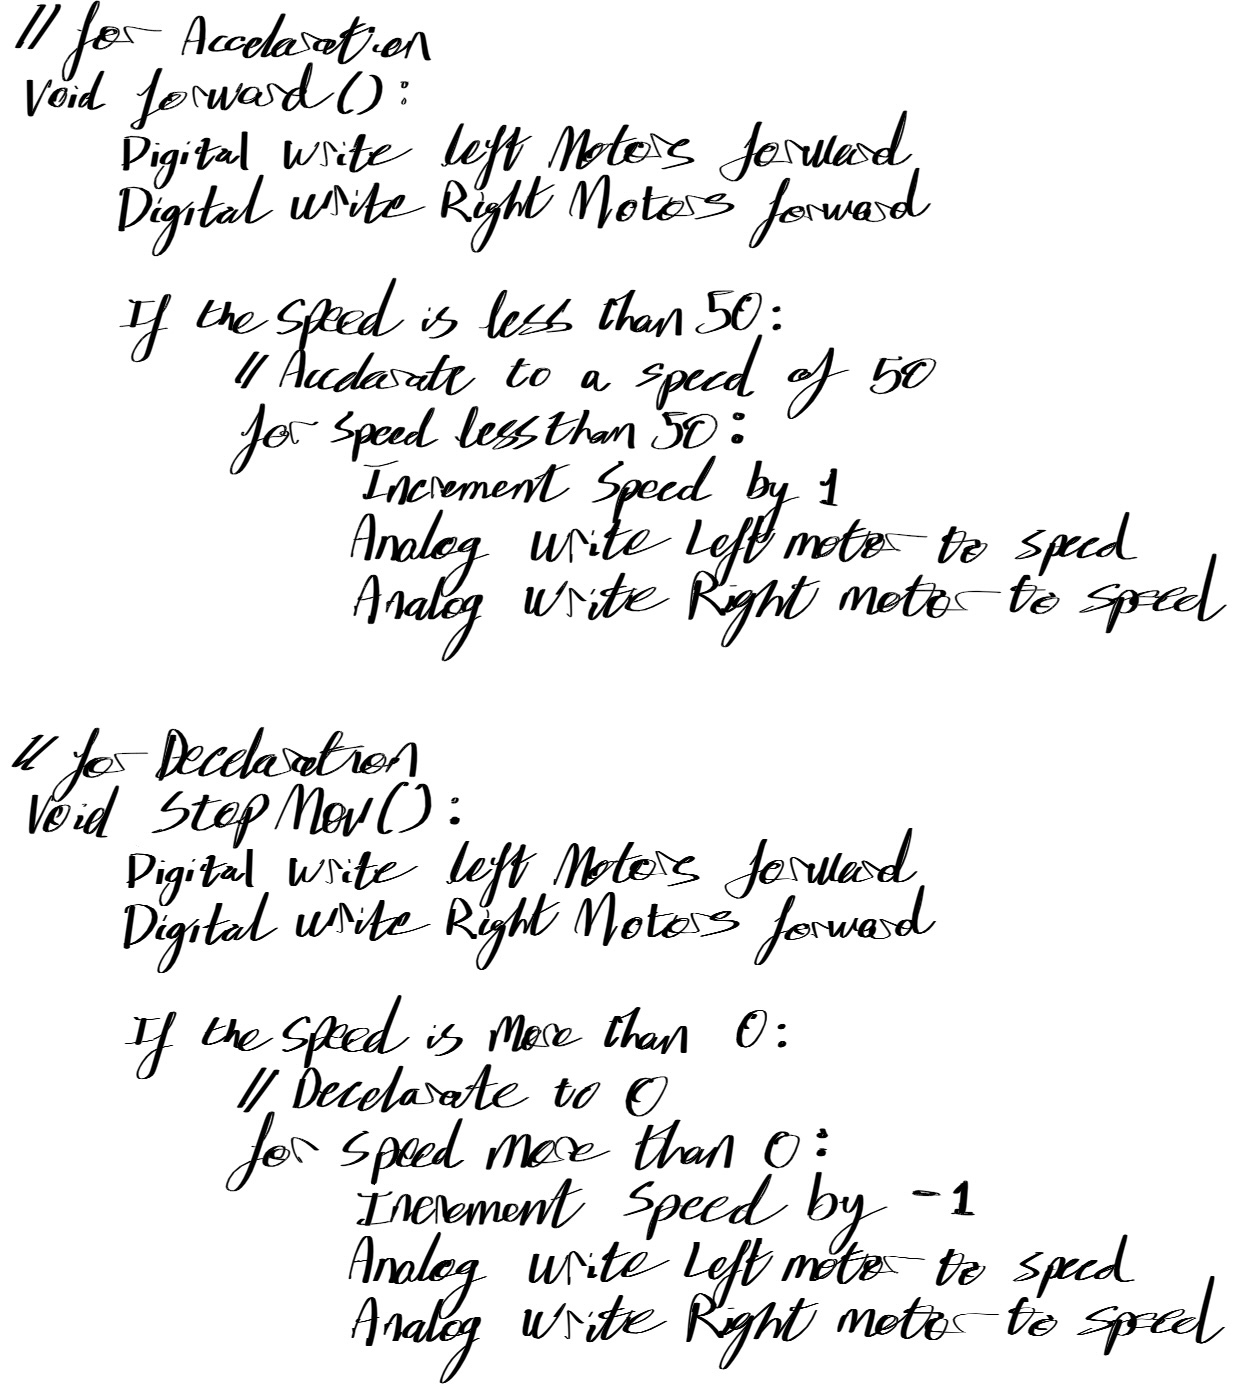 // for Accelaration
Void forward():
Digital write left Motors forward
Digital write Right Motors forward
If the speed is less than 50:
// Accelarate to a speed of 50
for speed less than 50:
Increment Speed by 1
Analog write Left motor to speed
Analog write Right motor to speed
// for Decelaration
Void StopMov():
Digital write left Motors forward
Digital write Right Motors forward
If the speed is More than 0:
// Decelarate to 0
for speed more than 0:
Increment Speed by -1
Analog write Left motor to speed
Analog write Right motor to speed